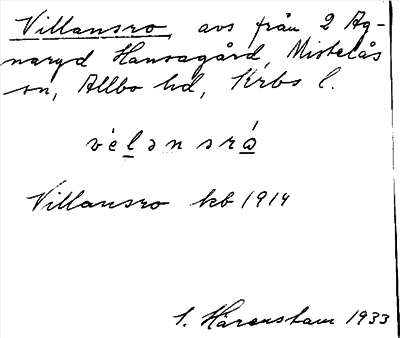 Villansro, avs från 2 Ag-
naryd Hansagård, Mistelås
sn, Allbo hd, Krbs l.
vélənsrá
Villansro kb 1914
S. Hårenstam 1933